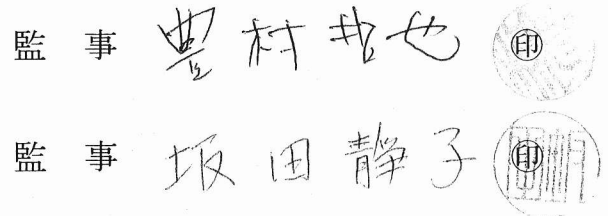 監事 豊村哲也 ㊞
監事 坂田静子 ㊞